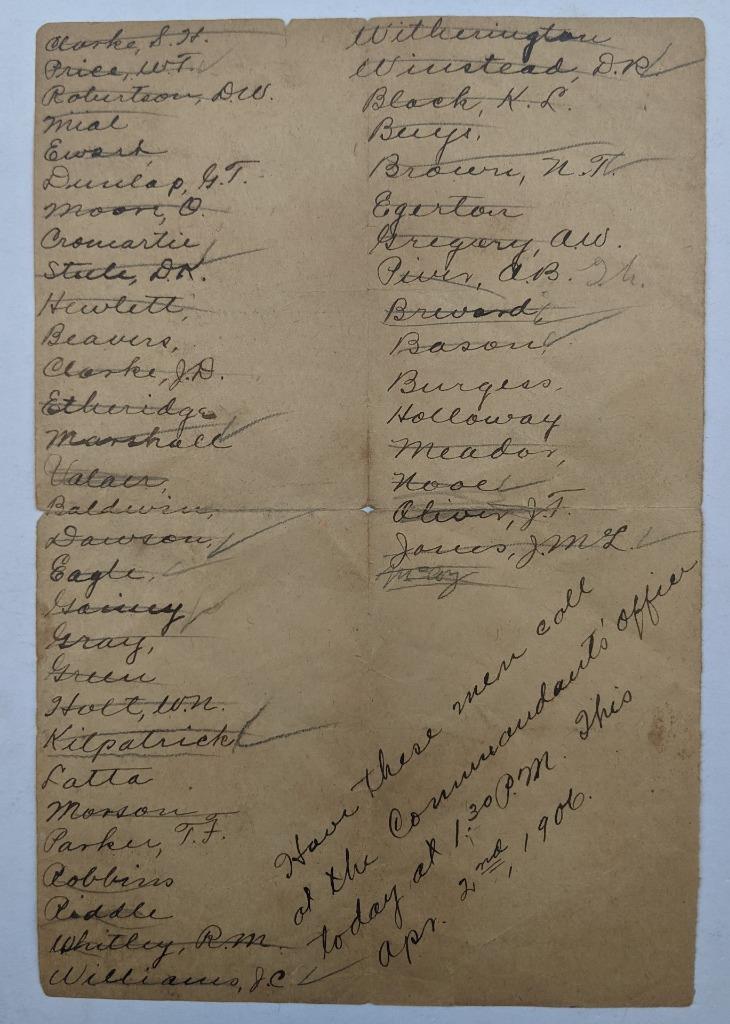 Clarke, S. H.
Price, W.T.
Robertson, D.W.
Mial
Ewart
Dunlap, G.T.
Moore, O.
Cromartie
Steele, D.K.
Hewlett,
Beavers,
Clarke, J.D.
Etheridge
Marshall
Valaer,
Baldwin,
Dawson,
Eagle,
Gainey
Gray,
Green
Holt, W.N.
Kilpatrick
Latta
Morson
Parker, T.F.
Robbins
Riddle
Whitley, R.M.
Williams, J.C
Witherington
Winstead, D.R
Black, K.L.
Buys,
Brown, N.T.
Egerton
Gregory, A.W.
Piver, A.B.
Brevard,
Bason,
Burgess,
Holloway
Meador,
Nooe
Oliver, J.T.
Jones, J.McL.
McCoy
Have these men call
at the Commandants' office
today at 1:30 P.M. This
Apr. 2nd, 1906.